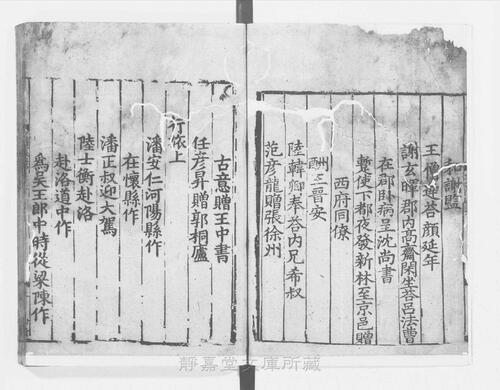 和謝監
王僧達荅顔延年
謝玄暉郡内髙齋閑坐荅吕法曹
在郡卧病呈沈尚書
蹔使下都夜發新林至京邑贈
西府同僚
酬王晉安
陸韓卿奉荅内兄希叔
范彦龍贈張徐州
古意贈王中書
任彦昇贈郭桐廬
行依上
潘安仁河陽縣作
在懷縣作
潘正叔迎大駕
陸士衡赴洛
赴洛道中作
為吴王郎中時從梁陳作
靜嘉堂文庫所藏